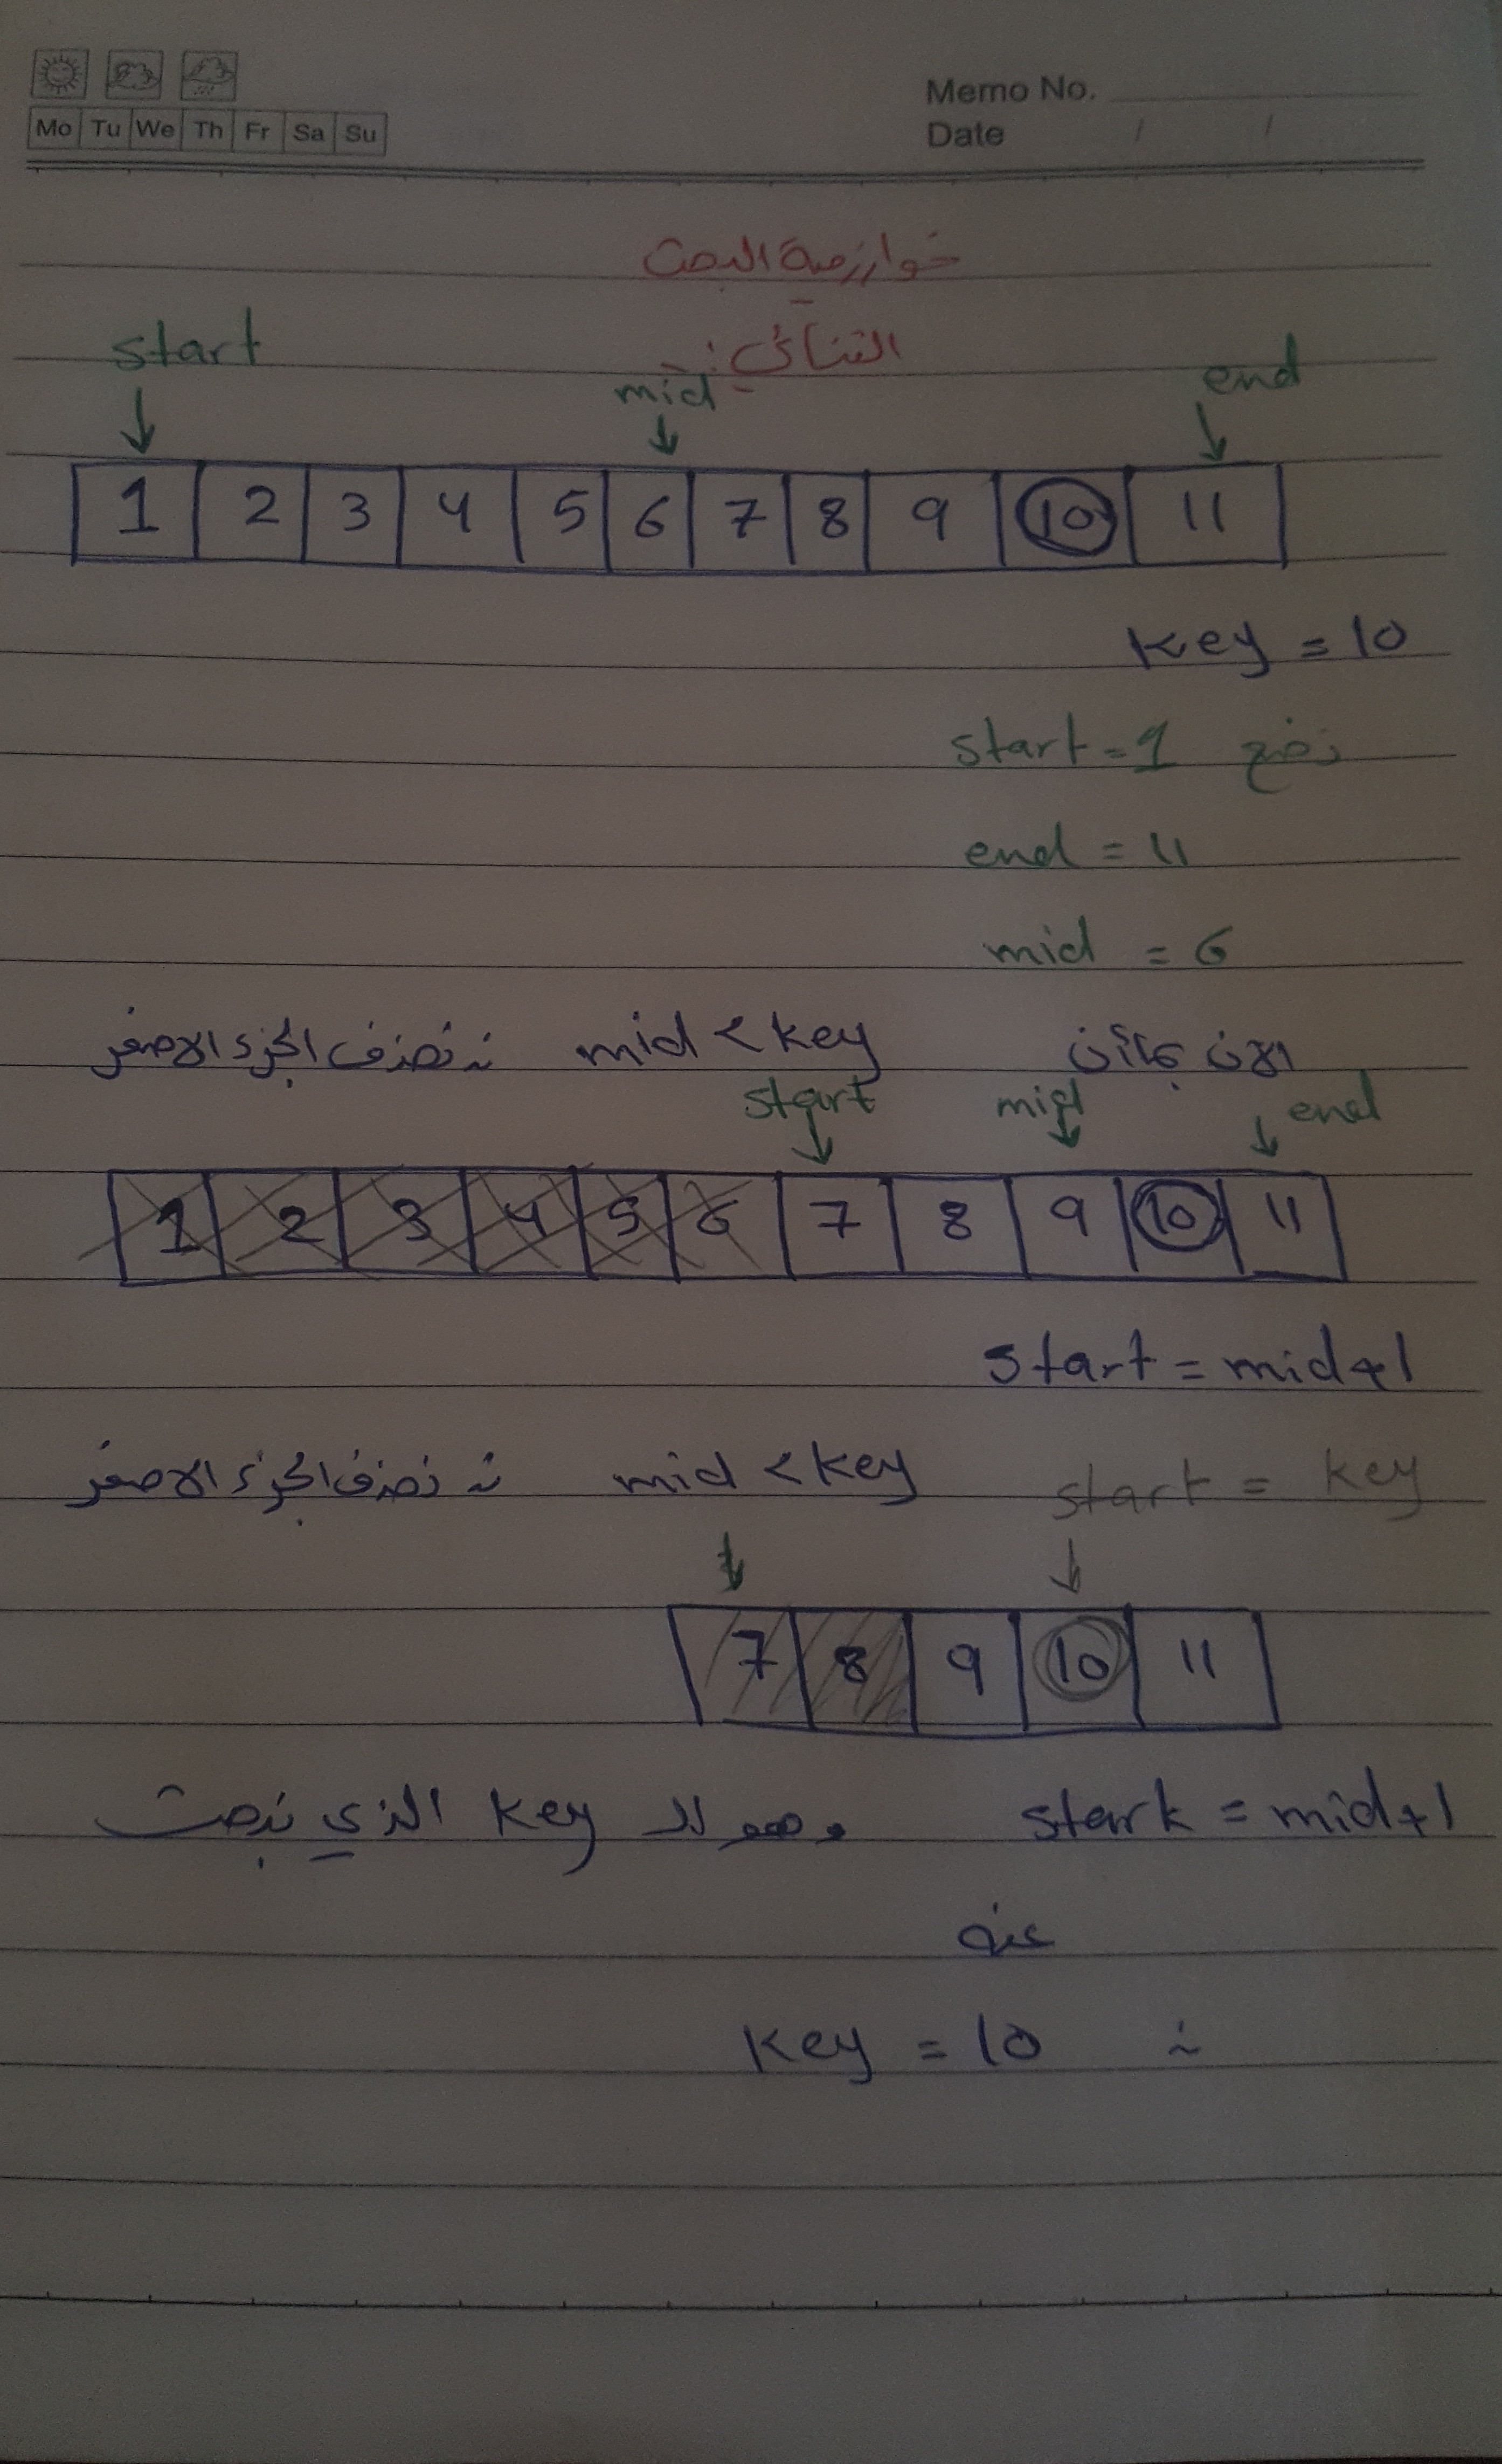 Memo No.
Mo Tu We Th Fr Sa Su
Date / /
خوارزمية البحث
الثنائي :-
start mid end
1 2 3 4 5 6 7 8 9 10 11
key = 10
نضع start = 1
end = 11
mid = 6
الان بما أن mid < key ∴ نحذف الجزء الاصغر
start mid end
1 2 3 4 5 6 7 8 9 10 11
start = mid+1
start = key mid < key ∴ نحذف الجزء الاصغر
7 8 9 10 11
start = mid+1 وهو الـ key الذي نبحث
عنه
∴ key = 10